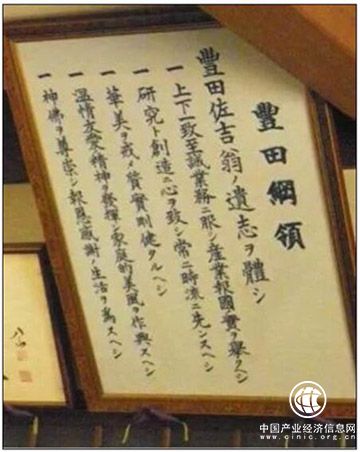 豊田綱領
豊田佐吉翁ノ遺志ヲ體シ
一 上下一致至誠業務ニ服シ産業報國ノ實ヲ擧グベシ
一 研究ト創造ニ心ヲ致シ常ニ時流ニ先ンズベシ
一 華美ヲ戒メ質實剛健タルベシ
一 温情友愛ノ精神ヲ發揮シ家庭的美風ヲ作興スベシ
一 神佛ヲ尊崇シ報恩感謝ノ生活ヲ為スベシ
中国产业经济信息网
www.cinic.org.cn